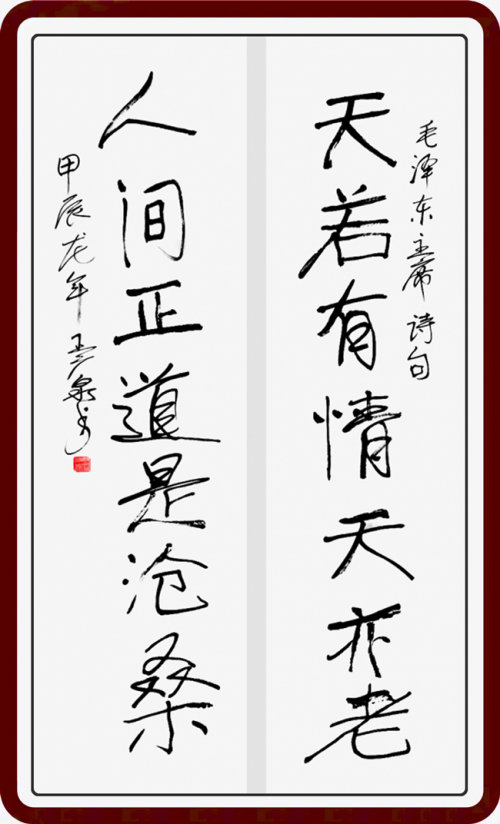 毛泽东主席诗句
天若有情天亦老
人间正道是沧桑
甲辰龙年